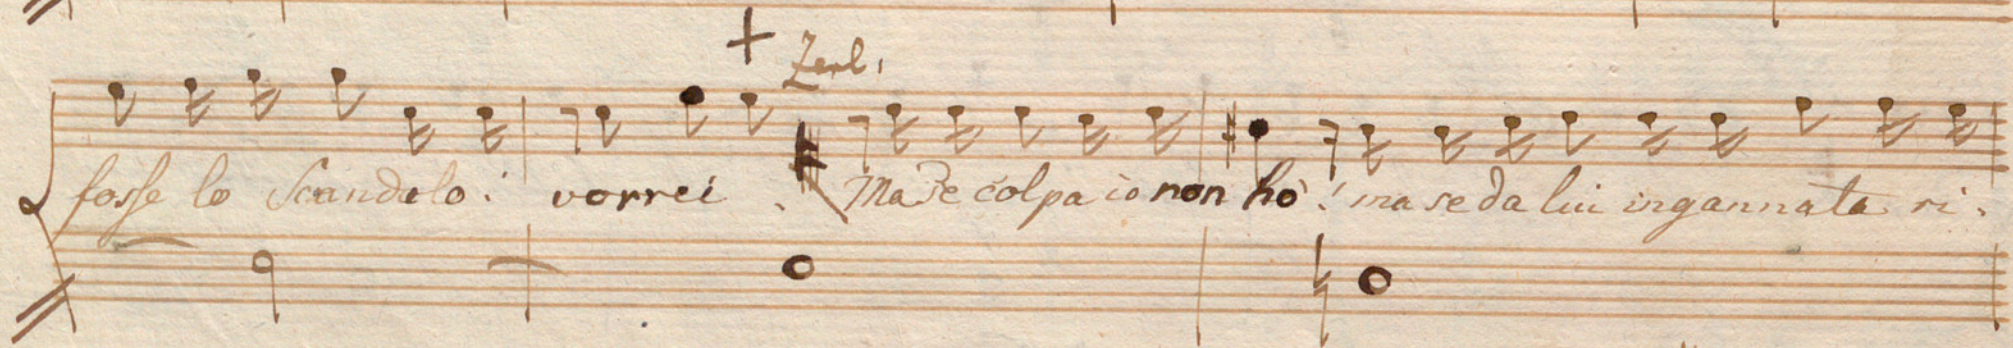 Zerl.
fosse lo Scandalo! vorrei. Ma se colpa io non hò! ma se da lui ingannata ri.